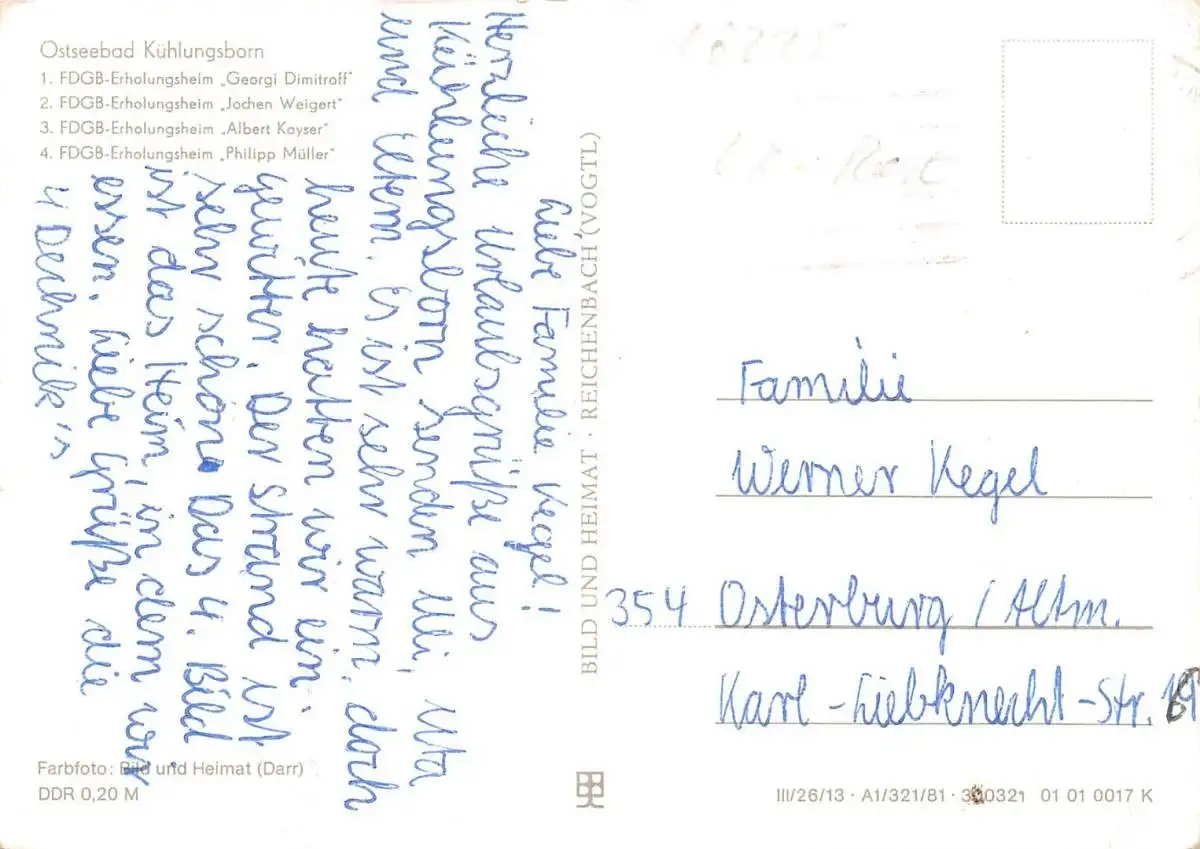 Ostseebad Kühlungsborn
1. FDGB-Erholungsheim „Georgi Dimitroff"
2. FDGB-Erholungsheim „Jochen Weigert"
3. FDGB-Erholungsheim „Albert Kayser"
4. FDGB-Erholungsheim „Philipp Müller"
Liebe Familie Kegel!
Herzliche Urlaubsgrüße aus
Kühlungsborn senden Uli, Uta
und Eltern. Es ist sehr warm, doch
heute hatten wir ein
Gewitter. Der Strand ist
sehr schön. Das 4. Bild
ist das Heim, in dem wir
essen. Liebe Grüße die
4
Farbfoto: Bild und Heimat (Darr)
DDR 0,20 M
BILD UND HEIMAT · REICHENBACH (VOGTL)
Familie
Werner Kegel
354 Osterburg / Altm.
Karl-Liebknecht-Str.
III/26/13 · A1/321/81 · 01 01 0017 K